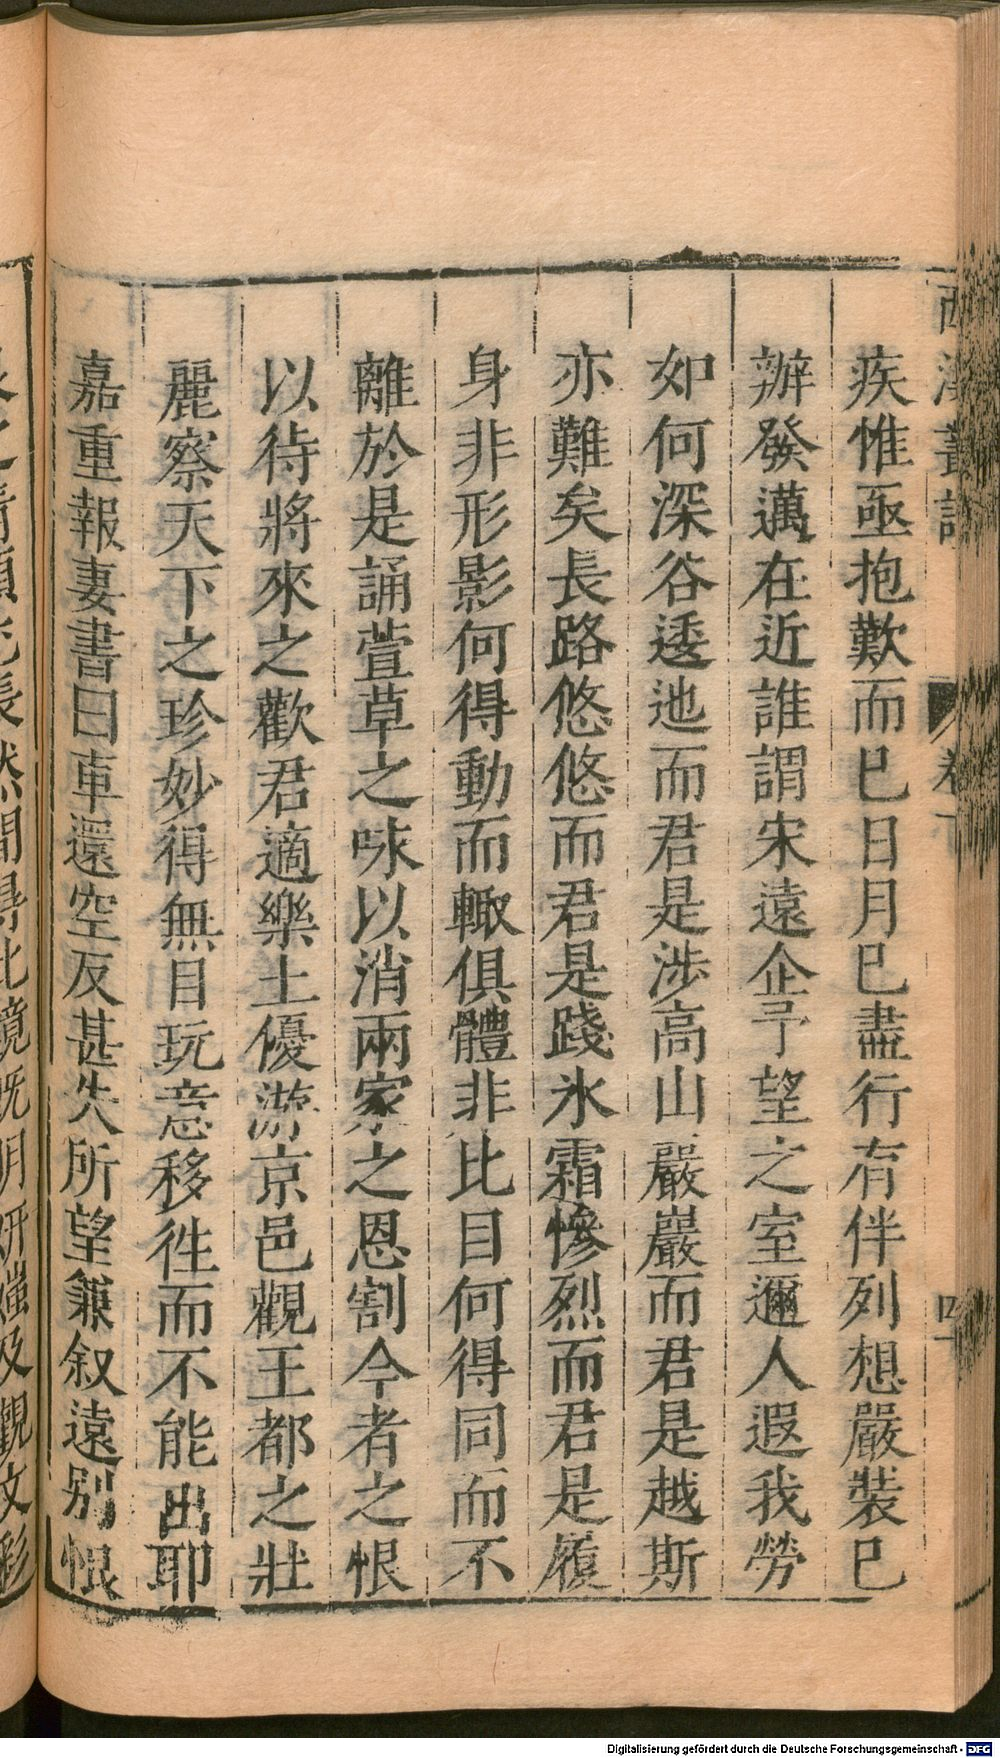 疾惟亟抱歎而已日月已盡行有伴列想嚴裝已
辦發邁在近誰謂宋遠企予望之室邇人遐我勞
如何深谷逶迆而君是涉高山嚴巖而君是越斯
亦難矣長路悠悠而君是踐氷霜慘烈而君是履
身非形影何得動而輙俱體非比目何得同而不
離於是誦萱草之咏以消兩家之恩割今者之恨
以待將來之歡君適樂土優游京邑觀王都之壯
麗察天下之珍妙得無目玩意移徃而不能出耶
嘉重報妻書曰車還空反甚失所望兼叙遠别恨
Digitalisierung gefördert durch die Deutsche Forschungsgemeinschaft - DFG